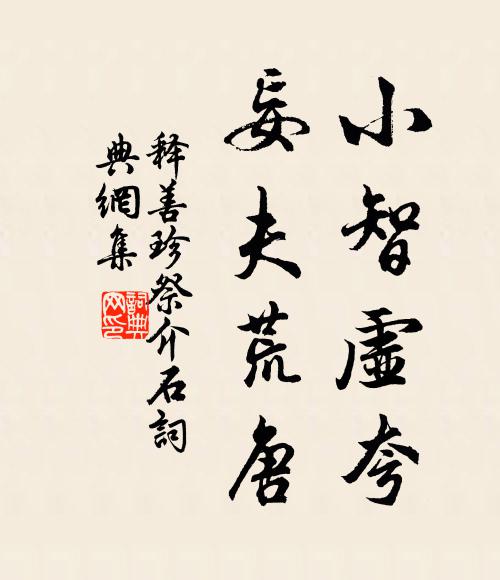 小智虛夸
妄夫荒唐
释善珍祭介石詞
典網集
詞典網印